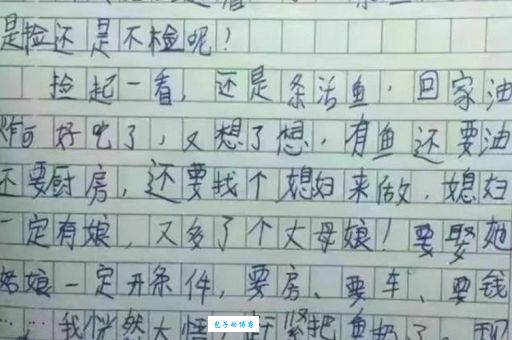 是捡还是不检呢！
捡起一看，还是条活鱼，回家油
炸好吃了，又想了想，有鱼还要油
还要厨房，还要找个媳妇来做，媳妇
一定有娘，又多了个丈母娘！要娶她
姑娘一定开条件，要房、要车、要钱
……，我恍然大悟，赶紧把鱼扔了，
包子的博客